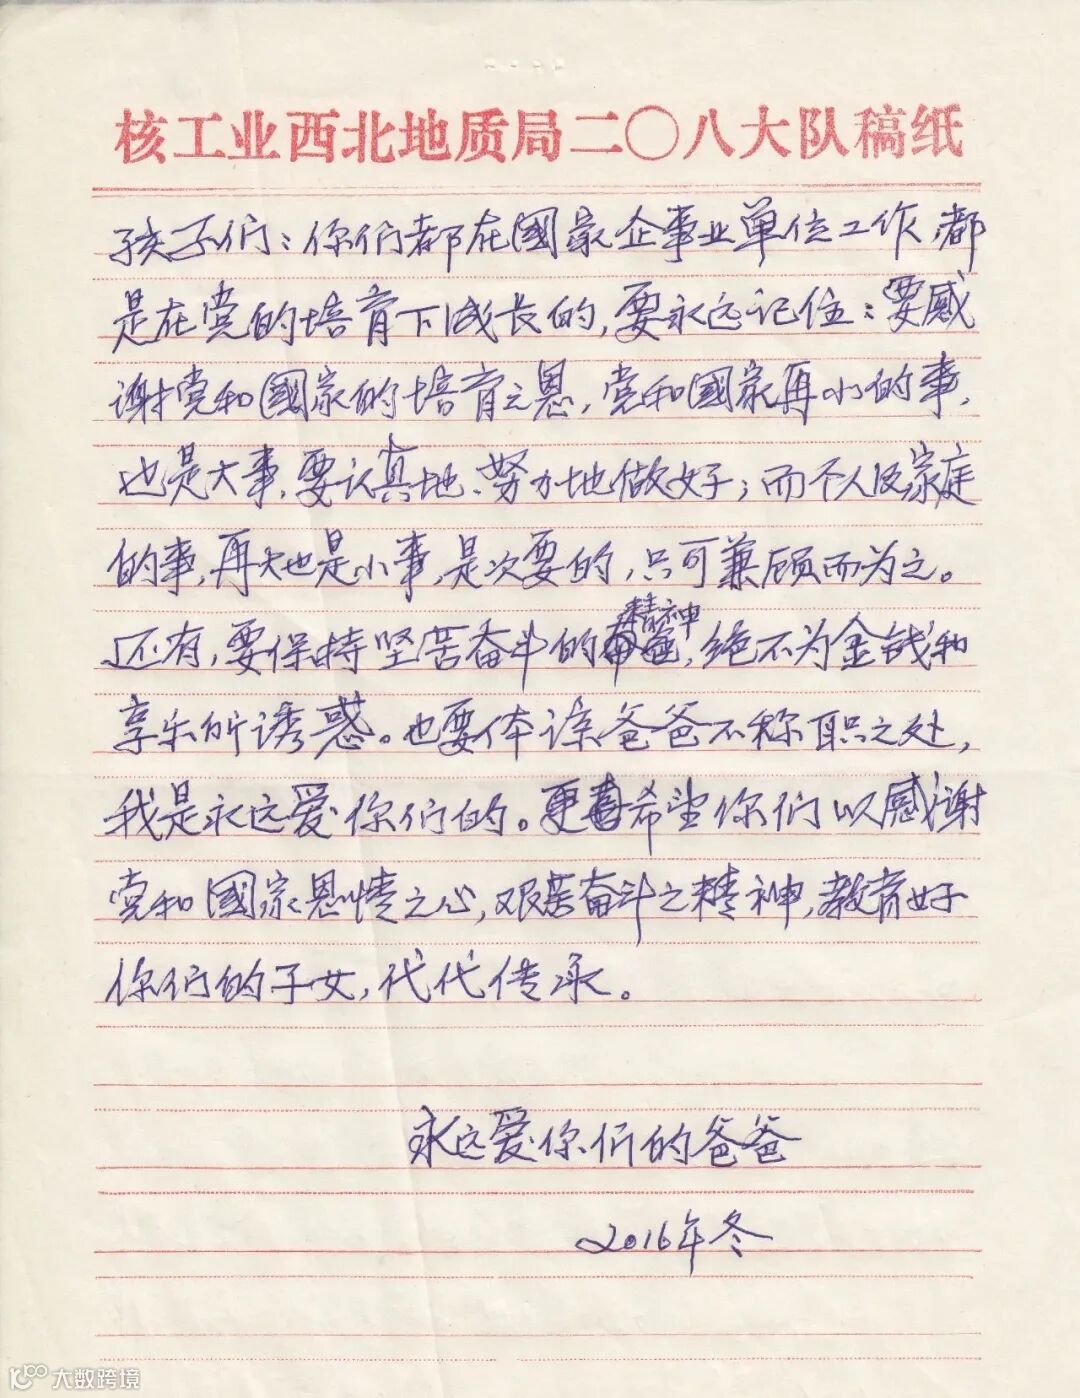 核工业西北地质局二〇八大队稿纸
孩子们：你们都在國家企事业单位工作，都
是在党的培育下成长的，要永远记住：要感
谢党和國家的培育之恩，党和國家再小的事，
也是大事，要认真地、努力地做好；而个人及家庭
的事，再大也是小事，是次要的，只可兼顾而为之。
还有，要保持坚苦奋斗的精神，绝不为金钱和
享乐所诱惑。也要体谅爸爸不称职之处，
我是永远爱你们的。更希望你们以感谢
党和國家恩情之心，艰苦奋斗之精神，教育好
你们的子女，代代传承。
永远爱你们的爸爸
2016年冬
大数跨境